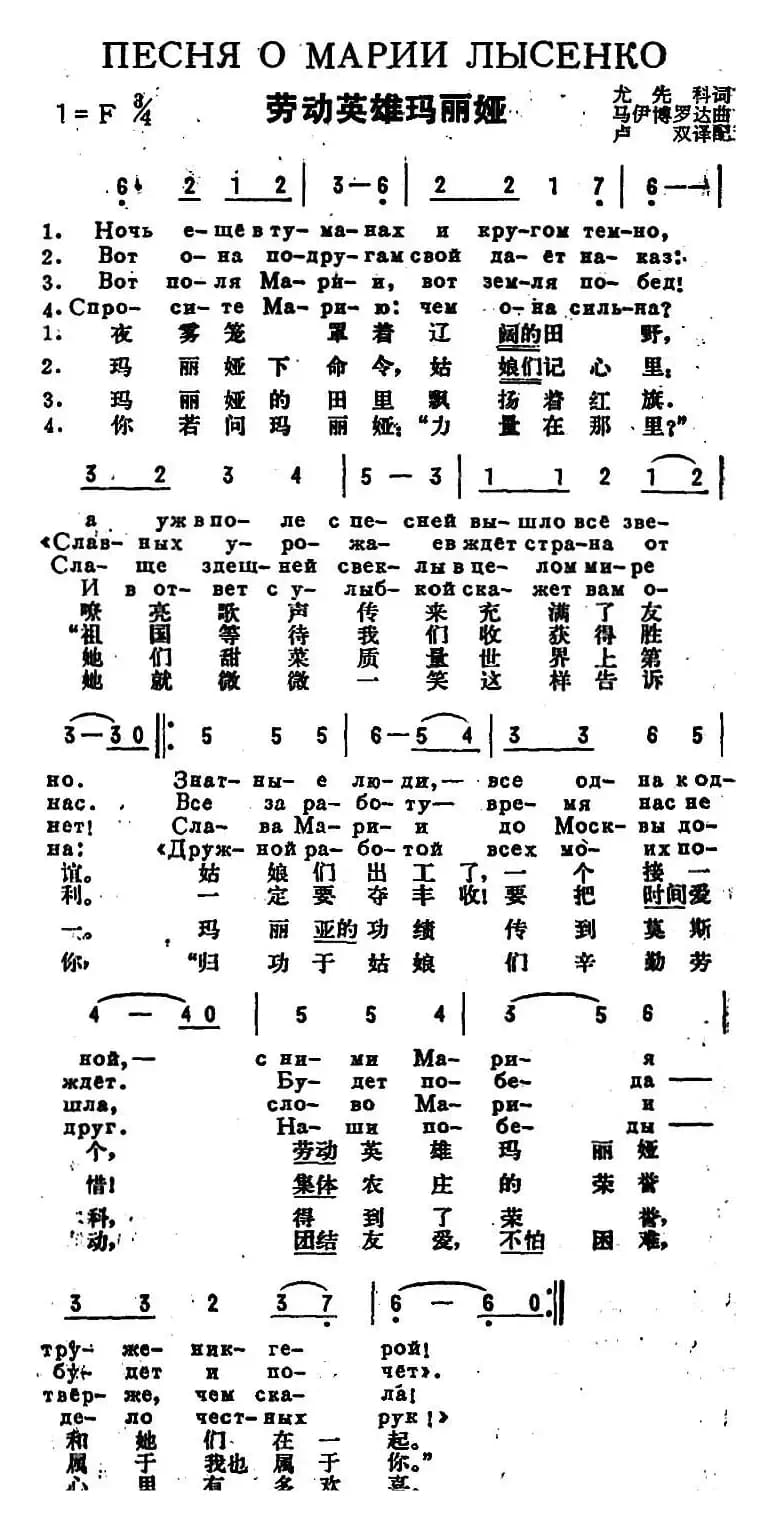 ПЕСНЯ О МАРИИ ЛЫСЕНКО
劳动英雄玛丽娅
1=F 3/4
尤先科词
马伊博罗达曲
卢双译配
6 2 1 2 | 3—6 | 2 2 1 7 | 6——|
1. Ночь е-щё в ту-ма-нах и кру-гом тем-но,
2. Вот о-на по-дру-гам свой да-ёт на-каз:
3. Вот по-ля Ма-ри-и, вот зем-ля по-бед!
4. Спро-си-те Ма-ри-ю: чем о-на силь-на?
1. 夜雾笼罩着辽阔的田野,
2. 玛丽娅下命令,姑娘们记心里:
3. 玛丽娅的田里飘扬着红旗.
4. 你若问玛丽娅:“力量在那里?”
3. 2 3 4 | 5—3 | 1 1 2 1 2
а уж в по-ле с пе-сней вы-шло всё зве-
«Слав-ных у-ро-жа-ев ждёт стра-на от
Сла-ще здещ-ней свек-лы в це-лом ми-ре
И в от-вет с у-лыб-кой ска-жет вам о-
嘹亮歌声传来充满了友
“祖国等待我们收获得胜
她们甜菜质量世界上第
她就微微一笑这样告诉
3—3 0 :‖: 5 5 5 | 6—5 4 | 3 3 6 5 |
но. Знат-ны-е лю-ди,— все од-на к од-
нас. Все за ра-бо-ту— вре-мя нас не
нет! Сла-ва Ма-ри-и до Моск-вы до-
на: «Друж-ной ра-бо-той всех мо-их по-
谊。姑娘们出工了,一个接一
利。一定要夺丰收!要把时间爱
一。玛丽亚的功绩传到莫斯
你,“归功于姑娘们辛勤劳
4 — 4 0 | 5 5 4 | 3 5 6 |
ной,— с ни-ми Ма-ри-я
ждёт. Бу-дет по-бе-да —
шла, сло-во Ма-ри-и
друг. На-ши по-бе-ды —
个,劳动英雄玛丽娅
惜!集体农庄的荣誉
科,得到了荣誉,
动,团结友爱,不怕困难,
3 3 2 3 7 | 6 — 6 0 :‖
тру-же-ник-ге-рой!
бу-дет и по-чёт».
твёр-же, чем ска-ла!
де-ло чест-ных рук!»
和她们在一起。
属于我也属于你。”
心里有多欢喜.